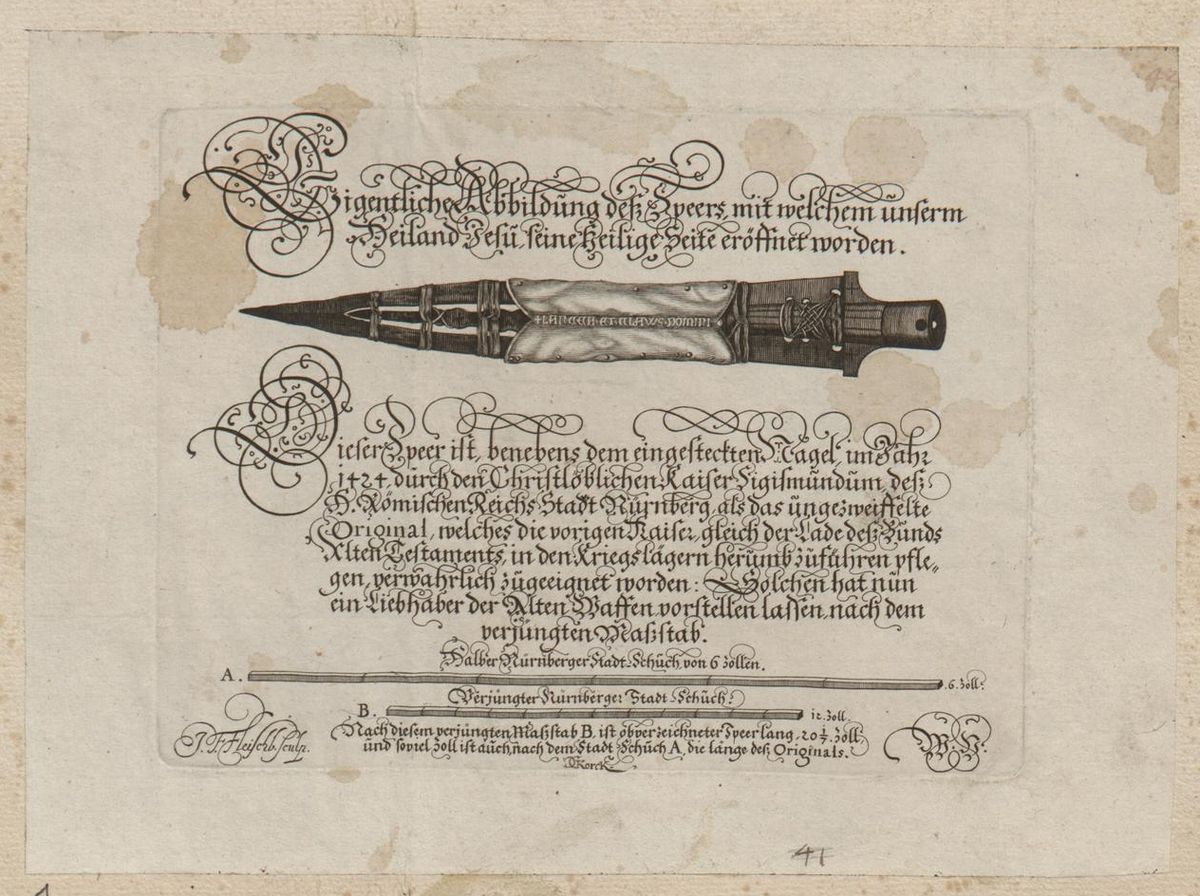 Eigentliche Abbildūng deß Speers, mit welchem ūnserm
Heiland Jesū, seine Heilige Seite eröffnet worden.
+LANCEA·ET·CLAWS·DOMINI
Dieser Speer ist, benebens dem eingesteckten Nagel, im Jahr
1424. dūrch den Christlöblichen Kaiser Sigismūndūm, deß
H. Römischen Reichs Stadt Nūrnberg, als das ūngezweiffelte
Original, welches die vorigen Kaiser, gleich der Lade deß Būnds
Alten Testaments, in den Kriegslägern herūmb zūführen pfle„
gen, verwahrlich zūgeeignet worden: Solchen hat nūn
ein Liebhaber der Alten Waffen, vorstellen lassen, nach dem
verjūngten Maßstab.
Halber Nūrnberger Stadt-Schūch, von 6 zollen.
A. 6. Zoll.
Verjūngter Nūrnberger Stadt-Schūch.
B. 12. Zoll.
Nach diesem verjūngten Maßstab B. ist obverzeichneter Speer lang, 20½. Zoll,
ūnd soviel Zoll ist aūch, nach dem Stadt-Schūch A. die länge deß Originals.
J. F. Fleischb. sculp.
Korck
41